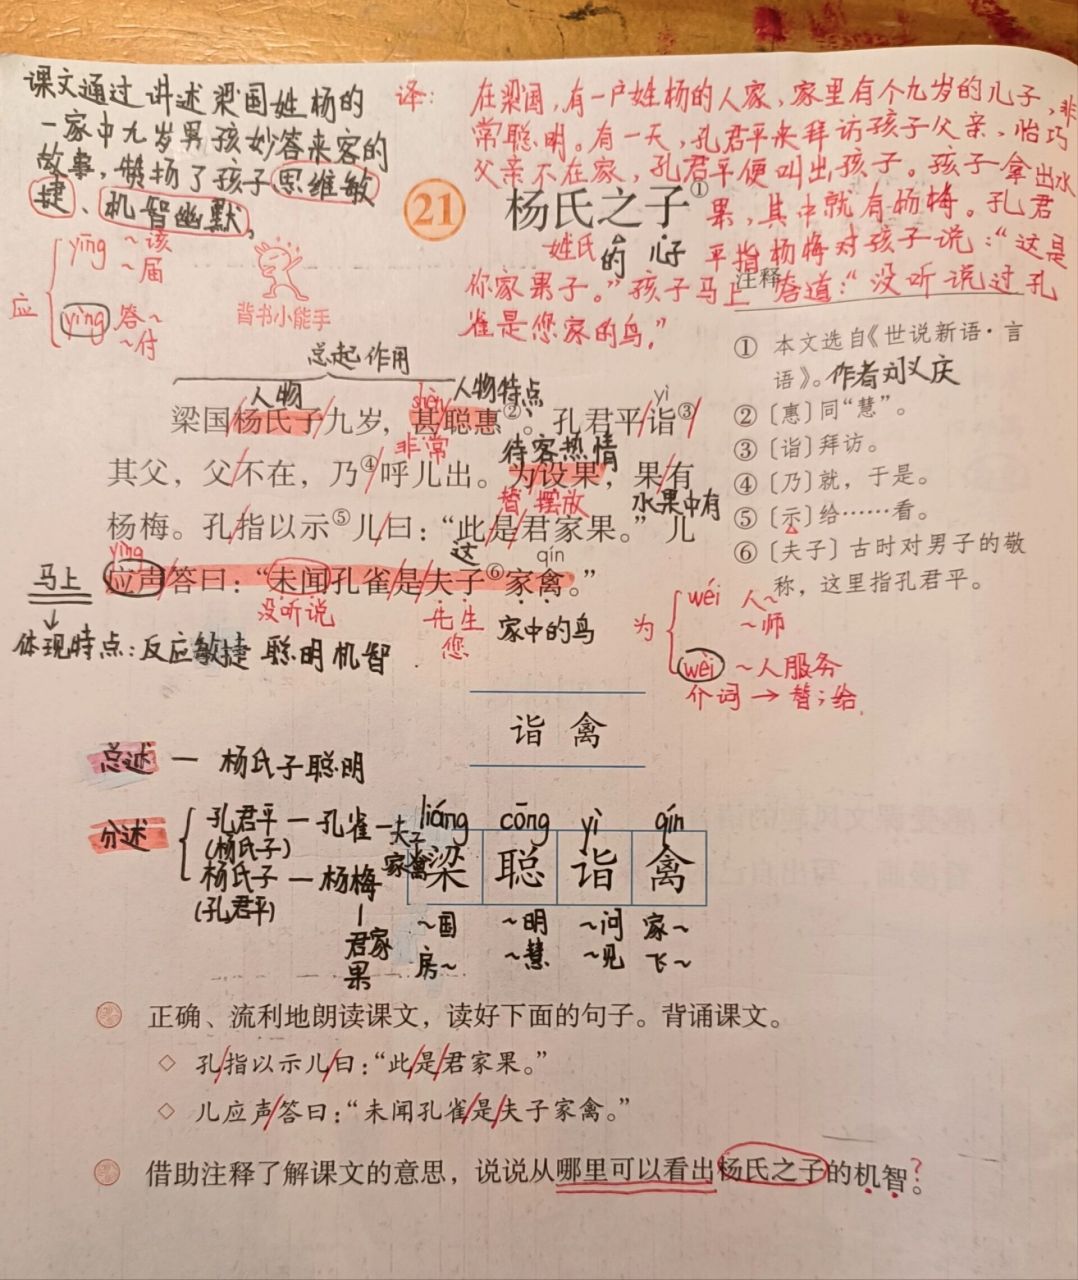 课文通过讲述梁国姓杨的
一家中九岁男孩妙答来客的
故事，赞扬了孩子思维敏
捷、机智幽默。
译：
在梁国，有一户姓杨的人家，家里有个九岁的儿子，非
常聪明。有一天，孔君平来拜访孩子父亲，恰巧
父亲不在家，孔君平便叫出孩子。孩子拿出水
果，其中就有杨梅。孔君
平指杨梅对孩子说：“这是
你家果子。”孩子马上答道：“没听说过孔
雀是您家的鸟。”
21 杨氏之子①
姓氏 的 儿子
应
yīng ～该
～届
yìng 答～
～付
背书小能手
注释
① 本文选自《世说新语·言
语》。作者刘义庆
② 〔惠〕同“慧”。
③ 〔诣〕拜访。
④ 〔乃〕就，于是。
⑤ 〔示〕给……看。
⑥ 〔夫子〕古时对男子的敬
称，这里指孔君平。
总起作用
人物 shèn 人物特点 yì
梁国杨氏子九岁，甚聪惠②。孔君平诣③
非常 待客热情
其父，父不在，乃④呼儿出。为设果，果有
替 摆放 水果中有
杨梅。孔指以示⑤儿曰：“此是君家果。”儿
yìng 这 qín
应声答曰：“未闻孔雀是夫子⑥家禽。”
马上
没听说 先生 家中的鸟
您
体现特点：反应敏捷 聪明机智
为
wéi 人～
～师
wèi ～人服务
介词→替；给
诣 禽
总述 — 杨氏子聪明
分述
孔君平 — 孔雀 — 夫子
家禽
(杨氏子)
杨氏子 — 杨梅
(孔君平)
君家
果
liáng cōng yì qín
梁 聪 诣 禽
～国 ～明 ～问 家～
房～ ～慧 ～见 飞～
正确、流利地朗读课文，读好下面的句子。背诵课文。
◇ 孔/指以示儿/曰：“此/是/君家果。”
◇ 儿应声/答曰：“未闻孔雀/是/夫子家禽。”
借助注释了解课文的意思，说说从哪里可以看出杨氏之子的机智？。